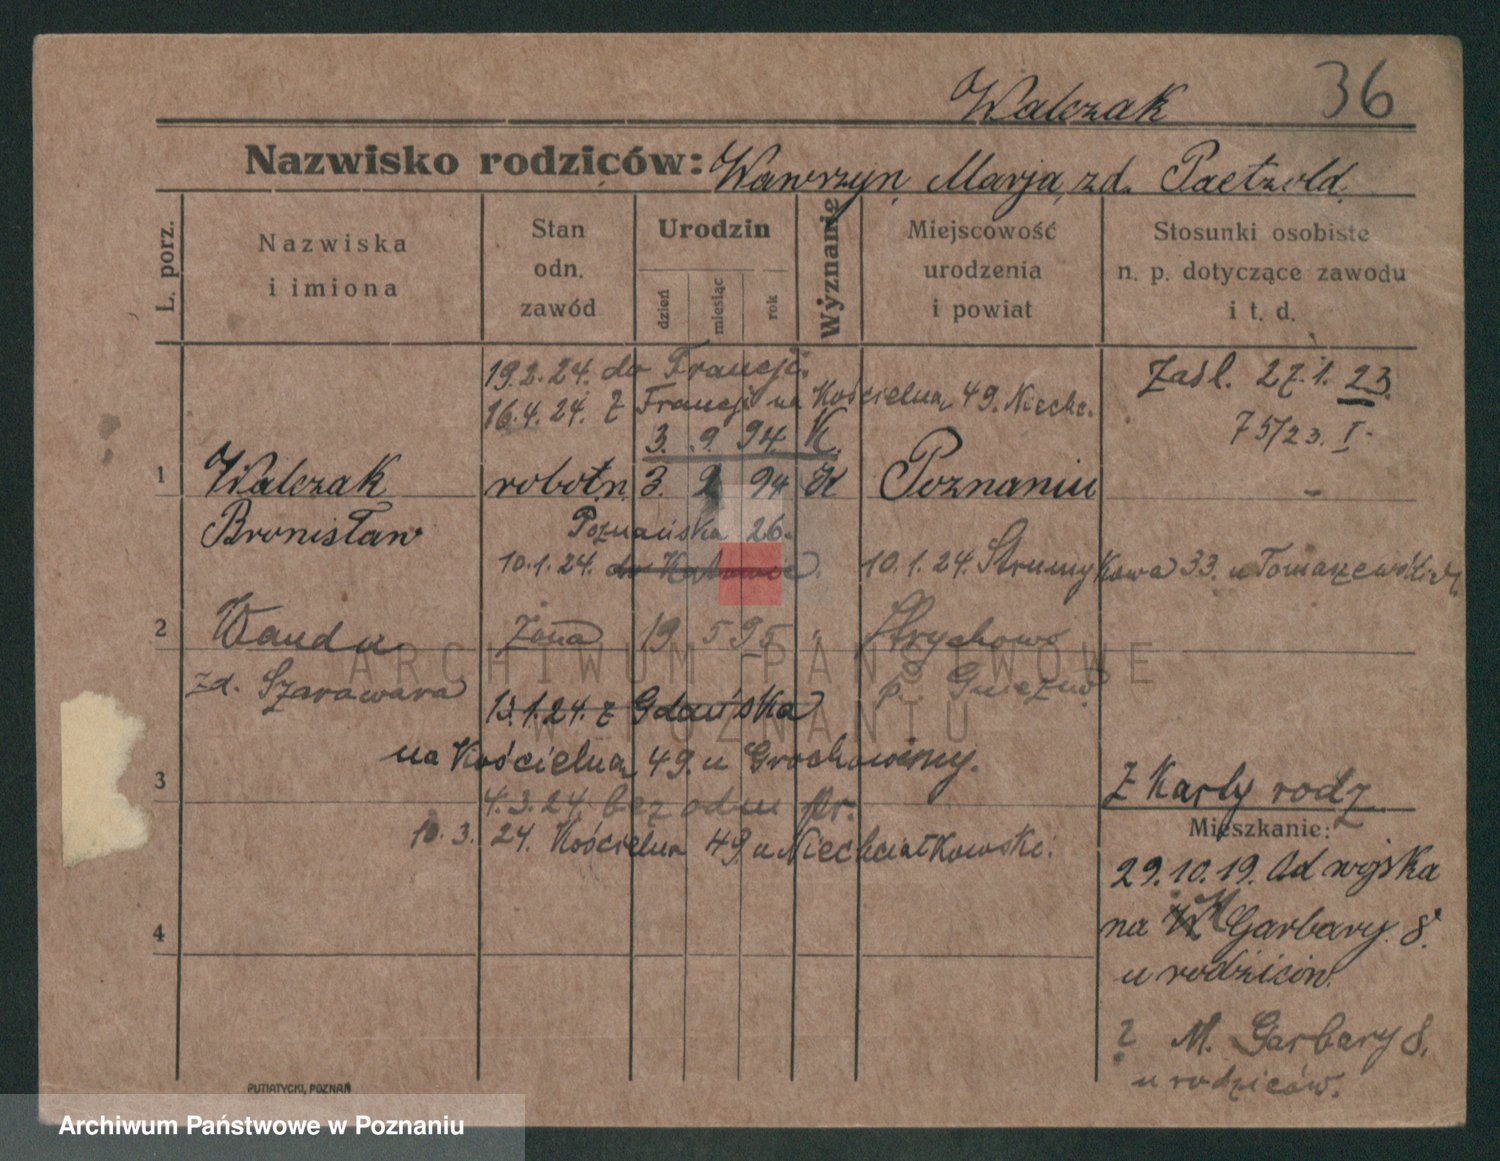 Walczak 36
Nazwisko rodziców: Wawrzyn, Marja, zd. Paetzold.
L. porz.
Nazwiska
i imiona
Stan
odn.
zawód
Urodzin
dzień
miesiąc
rok
Wyznanie
Miejscowość
urodzenia
i powiat
Stosunki osobiste
n. p. dotyczące zawodu
i t. d.
19.2.24. do Francji.
16.4.24. z Francji na Kościelna 49. Niechc.
Zaśl. 27.1.23.
75/23. I.
3. 9 94. K.
1 Walczak robotn. 3. 94 K Poznaniu
Bronisław
Poznańska 26.
10.1.24. do 10.1.24. Strumykowa 33. u Tomaszewskich
2 Wanda żona 19 5 95 " Strychowo
zd. Szarawara p. Gniezno
13.1.24. z Gdańska
na Kościelna 49. u Grochowiny.
3
4.3.24. bez odm pr.
10.3.24. Kościelna 49 u Niechciałkowski.
Z Karty rodz
Mieszkanie:
29.10.19. Od wojska
na Garbary 8.
u rodziców.
4
? M. Garbary 8.
u rodziców.
PUTIATYCKI, POZNAŃ
ARCHIWUM PAŃSTWOWE
W POZNANIU
Archiwum Państwowe w Poznaniu